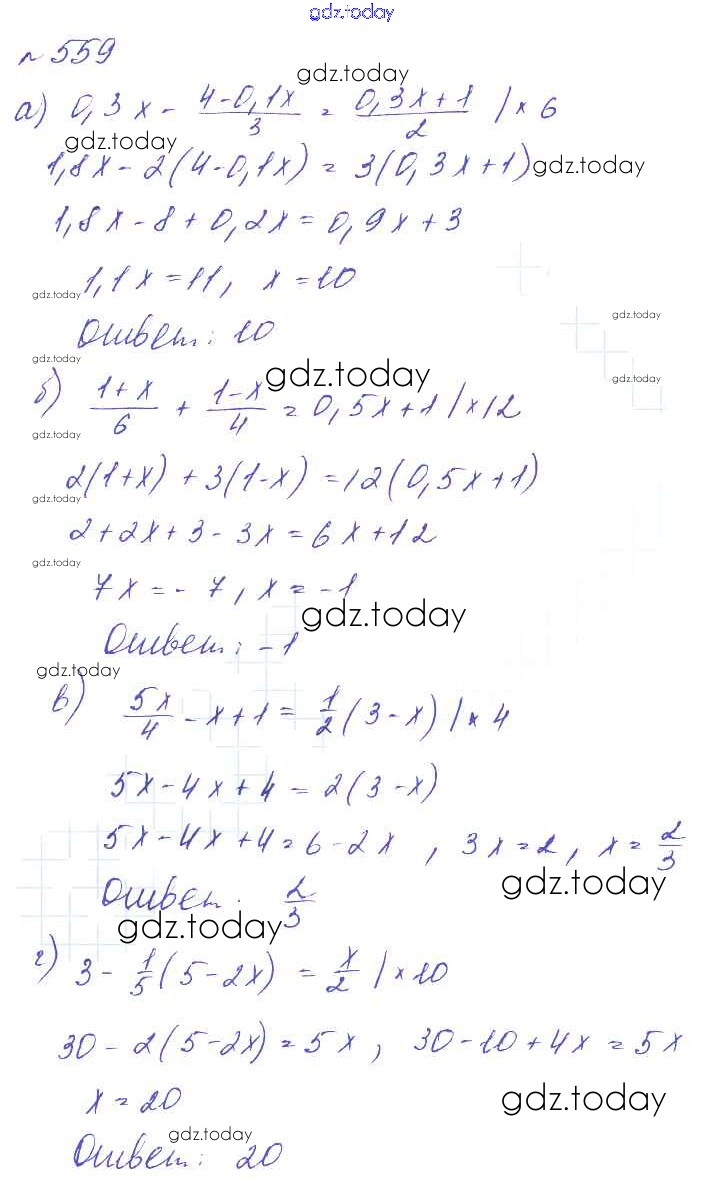 gdz.today
№ 559
gdz.today
а) 0,3x - (4-0,1x)/3 = (0,3x+1)/2 | × 6
gdz.today
1,8x - 2(4-0,1x) = 3(0,3x+1) gdz.today
1,8x - 8 + 0,2x = 0,9x + 3
1,1x = 11, x = 10
gdz.today
gdz.today
Ответ: 10
gdz.today
gdz.today
gdz.today
б) (1+x)/6 + (1-x)/4 = 0,5x+1 | × 12
gdz.today
2(1+x) + 3(1-x) = 12(0,5x+1)
gdz.today
2+2x+3-3x = 6x+12
gdz.today
7x = -7, x = -1
gdz.today
Ответ: -1
gdz.today
в) 5x/4 - x + 1 = 1/2 (3-x) | × 4
5x - 4x + 4 = 2(3-x)
5x - 4x + 4 = 6 - 2x, 3x = 2, x = 2/3
gdz.today
Ответ: 2/3
gdz.today
г) 3 - 1/5 (5-2x) = x/2 | × 10
30 - 2(5-2x) = 5x, 30-10+4x = 5x
x = 20
gdz.today
gdz.today
Ответ: 20